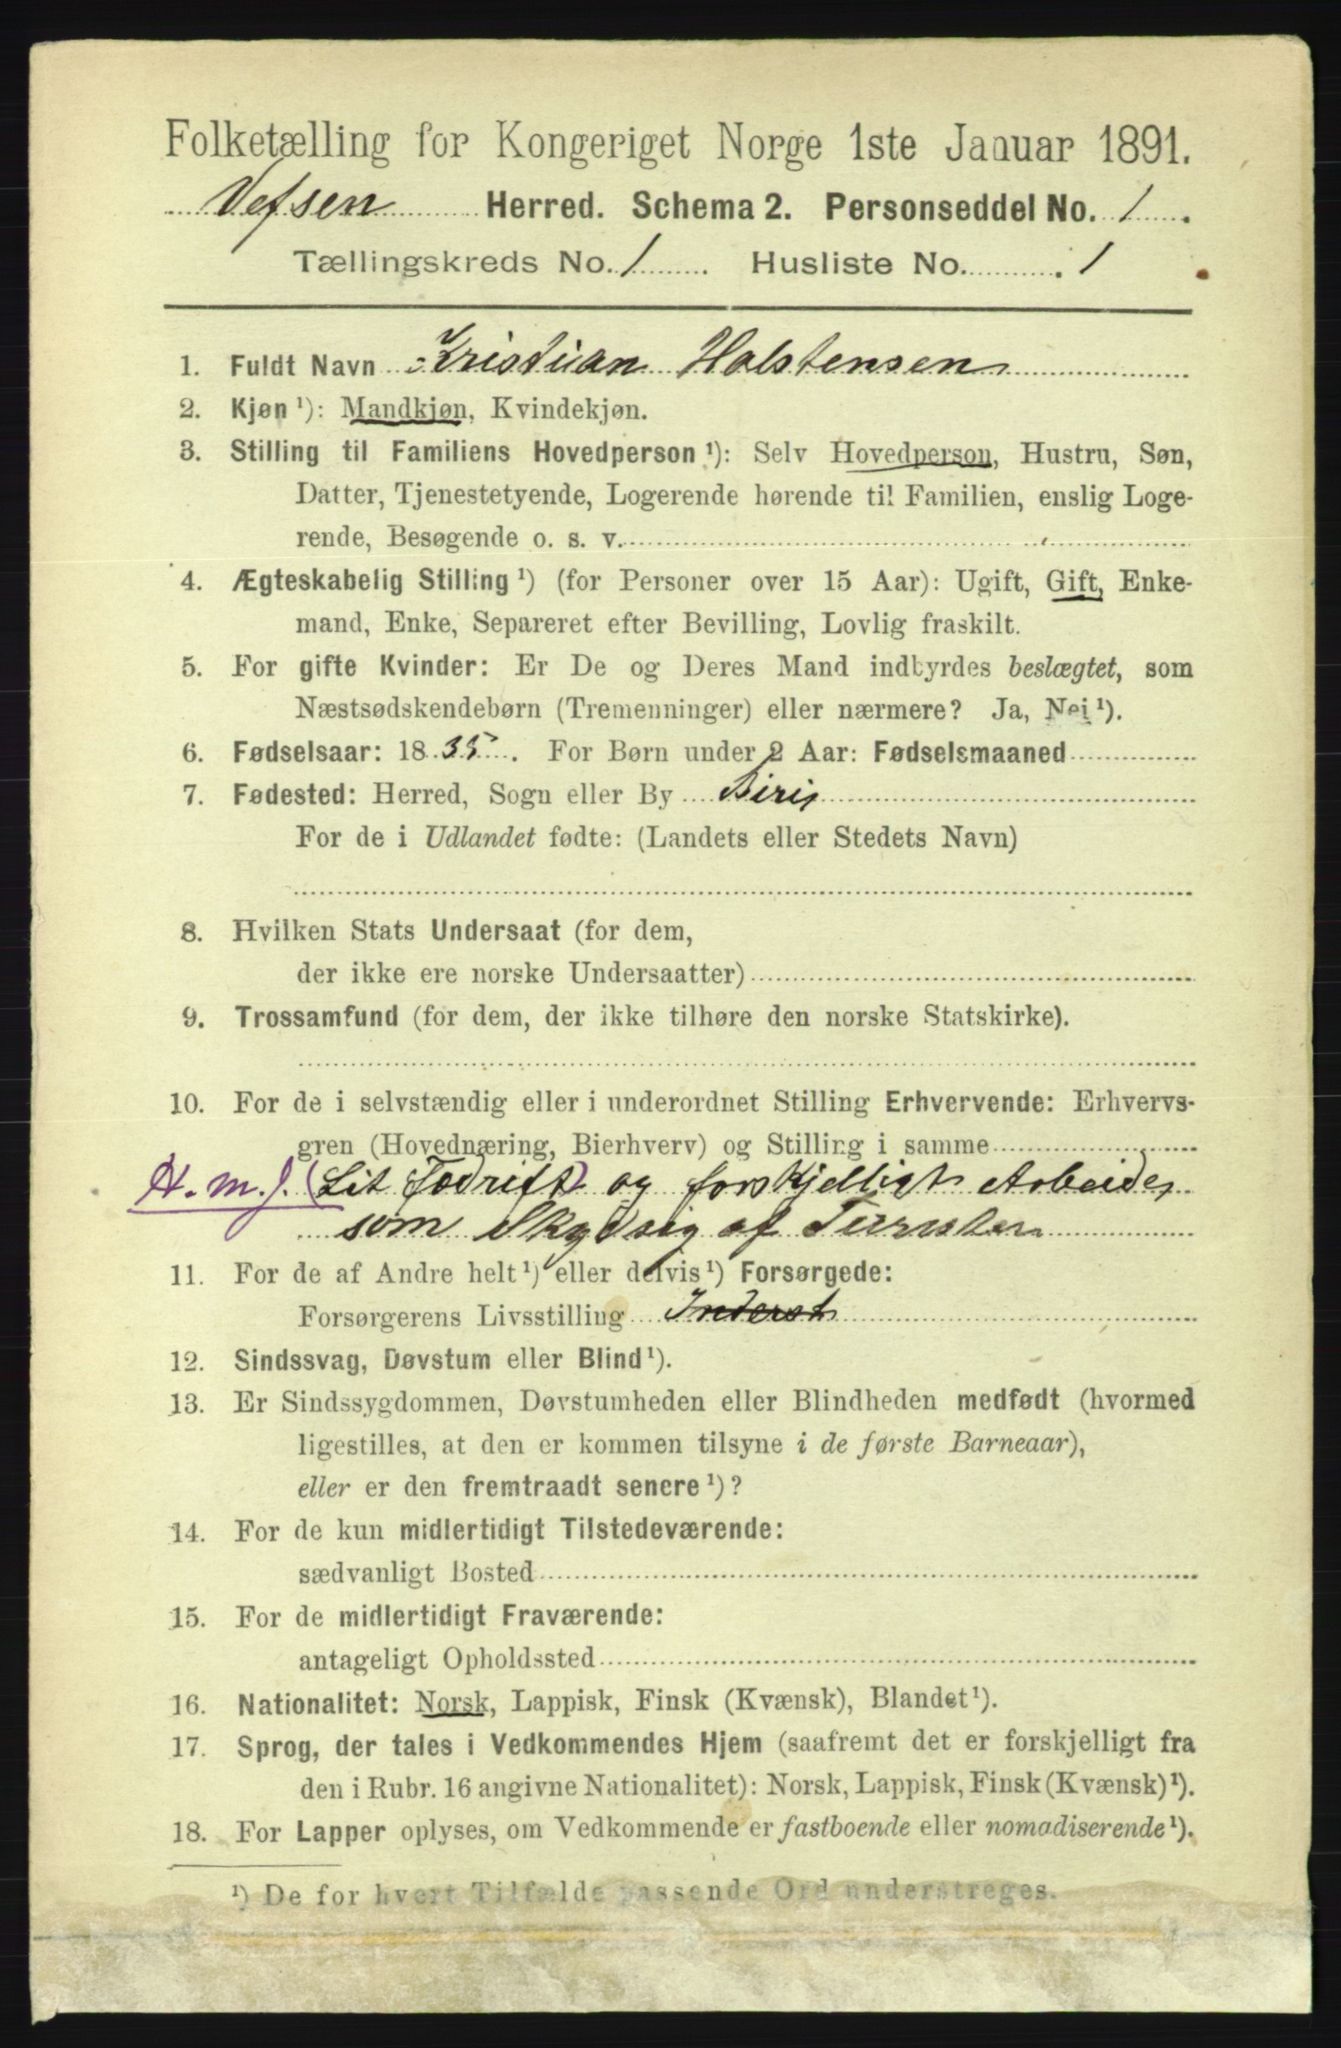 Folketælling for Kongeriget Norge 1ste Januar 1891.
Vefsen Herred. Schema 2. Personseddel No. 1.
Tællingskreds No. 1 Husliste No. 1
1. Fuldt Navn Kristian Holstensen
2. Kjøn ¹): Mandkjøn, Kvindekjøn.
3. Stilling til Familiens Hovedperson ¹): Selv Hovedperson, Hustru, Søn,
Datter, Tjenestetyende, Logerende hørende til Familien, enslig Loge-
rende, Besøgende o. s. v.
4. Ægteskabelig Stilling ¹) (for Personer over 15 Aar): Ugift, Gift, Enke-
mand, Enke, Separeret efter Bevilling, Lovlig fraskilt.
5. For gifte Kvinder: Er De og Deres Mand indbyrdes beslægtet, som
Næstsødskendebørn (Tremenninger) eller nærmere? Ja, Nei ¹).
6. Fødselsaar: 1835. For Børn under 2 Aar: Fødselsmaaned
7. Fødested: Herred, Sogn eller By Biri
For de i Udlandet fødte: (Landets eller Stedets Navn)
8. Hvilken Stats Undersaat (for dem,
der ikke ere norske Undersaatter)
9. Trossamfund (for dem, der ikke tilhøre den norske Statskirke).
10. For de i selvstændig eller i underordnet Stilling Erhvervende: Erhvervs-
gren (Hovednæring, Bierhverv) og Stilling i samme
H. m. J. (Lit Jodrift) og forskjelligt Arbeide,
som Skydsig af
11. For de af Andre helt ¹) eller delvis ¹) Forsørgede:
Forsørgerens Livsstilling Inderst
12. Sindssvag, Døvstum eller Blind ¹).
13. Er Sindssygdommen, Døvstumheden eller Blindheden medfødt (hvormed
ligestilles, at den er kommen tilsyne i de første Barneaar),
eller er den fremtraadt senere ¹)?
14. For de kun midlertidigt Tilstedeværende:
sædvanligt Bosted
15. For de midlertidigt Fraværende:
antageligt Opholdssted
16. Nationalitet: Norsk, Lappisk, Finsk (Kvænsk), Blandet ¹).
17. Sprog, der tales i Vedkommendes Hjem (saafremt det er forskjelligt fra
den i Rubr. 16 angivne Nationalitet): Norsk, Lappisk, Finsk (Kvænsk) ¹).
18. For Lapper oplyses, om Vedkommende er fastboende eller nomadiserende ¹).
¹) De for hvert Tilfælde passende Ord understreges.